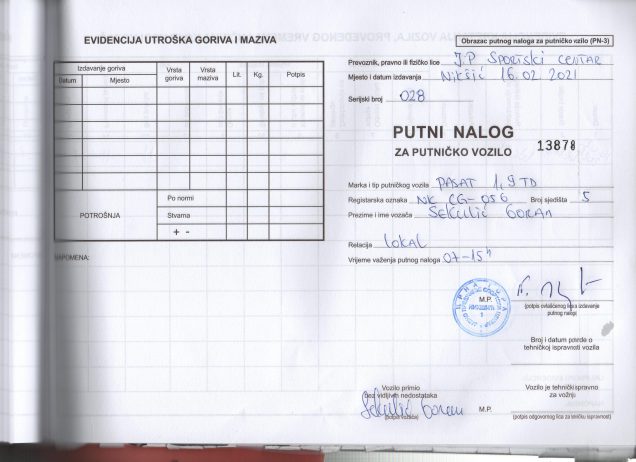 EVIDENCIJA UTROŠKA GORIVA I MAZIVA
Izdavanje goriva
Datum
Mjesto
Vrsta goriva
Vrsta maziva
Lit.
Kg.
Potpis
POTROŠNJA
Po normi
Stvarna
+ -
NAPOMENA:
Obrazac putnog naloga za putničko vozilo (PN-3)
Prevoznik, pravno ili fizičko lice J.P SPORTSKI CENTAR
Mjesto i datum izdavanja Nikšić 16.02.2021
Serijski broj 028
PUTNI NALOG
ZA PUTNIČKO VOZILO 13878
Marka i tip putničkog vozila PASAT 1,9 TD
Registarska oznaka NK CG-056 Broj sjedišta 5
Prezime i ime vozača SEKULIĆ GORAN
Relacija LOKAL
Vrijeme važenja putnog naloga 07-15h
M.P.
(potpis ovlašćenog lica za izdavanje
putnog naloga)
Broj i datum potvrde o
tehničkoj ispravnosti vozila
Vozilo primio
bez vidljivih nedostataka
Sekulić Goran M.P.
(potpis vozača)
Vozilo je tehnički ispravno
za vožnju
(potpis odgovornog lica za tehničku ispravnost)